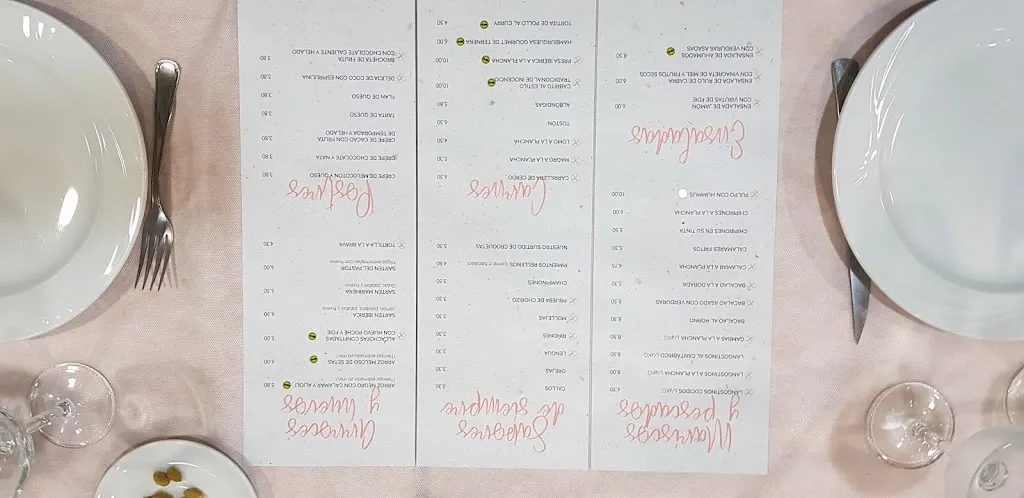 Mariscos
y pescados
LANGOSTINOS COCIDOS 1/4KG 6.50
LANGOSTINOS A LA PLANCHA 1/4KG 8.00
LANGOSTINOS AL CANTÁBRICO 1/4KG 8.50
GAMBAS A LA PLANCHA 1/4KG 8.50
BACALAO AL HORNO 8.50
BACALAO ASADO CON VERDURAS 8.50
BACALAO A LA DORADA 5.30
CALAMAR A LA PLANCHA 4.75
CALAMARES FRITOS 5.30
CHIPIRONES EN SU TINTA 5.50
CHIPIRONES A LA PLANCHA 6.00
PULPO CON HUMMUS 10.00
Ensaladas
ENSALADA DE JAMON
CON VIRUTAS DE FOIE 6.00
ENSALADA DE RULO DE CABRA
CON VINAGRETA DE MIEL Y FRUTOS SECOS 6.00
ENSALADA DE AHUMADOS
CON VERDURAS ASADAS 8.50
Sabores
de siempre
CALLOS 3.30
OREJAS 3.30
LENGUA 3.30
RIÑONES 3.30
MOLLEJAS 3.30
PRUEBA DE CHORIZO 3.30
CHAMPIÑONES 3.30
PIMIENTOS RELLENOS (carne o bacalao) 4.80
NUESTRO SURTIDO DE CROQUETAS 5.30
Carnes
CARRILLERA DE CERDO 6.50
MAGRO A LA PLANCHA 5.30
LOMO A LA PLANCHA 4.50
TOSTON 6.50
ALBONDIGAS 5.80
CABRITO AL ESTILO
TRADICIONAL DE INOCENCIO 10.00
PRESA IBERICA A LA PLANCHA 10.00
HAMBURGUESA GOURMET DE TERNERA 6.00
TORTITA DE POLLO AL CURRY 4.50
Arroces
y huevos
ARROZ NEGRO CON CALAMAR Y ALIOLI 5.80
(Tiempo estimado 20 min.)
ARROZ MELOSO DE SETAS 6.00
(Tiempo estimado 20 min.)
ALCACHOFAS CONFITADAS
CON HUEVO POCHE Y FOIE 5.00
SARTEN IBERICA 6.50
Jamon, patatas y huevo
SARTEN MARINERA 6.50
Gulas, patatas y huevo
SARTEN DEL PASTOR 6.00
Migas extremeñas con huevo
TORTILLA A LA BRAVA 4.30
Postres
CREPE DE MELOCOTON Y QUESO 3.80
CREPE DE CHOCOLATE Y NATA 3.80
CREPE DE CACAO CON FRUTA
DE TEMPORADA Y HELADO 3.80
TARTA DE QUESO 3.80
FLAN DE QUESO 3.80
DELICIA DE COCO CON ESPIRULINA 3.80
BROCHETA DE FRUTA
CON CHOCOLATE CALIENTE Y HELADO 3.80